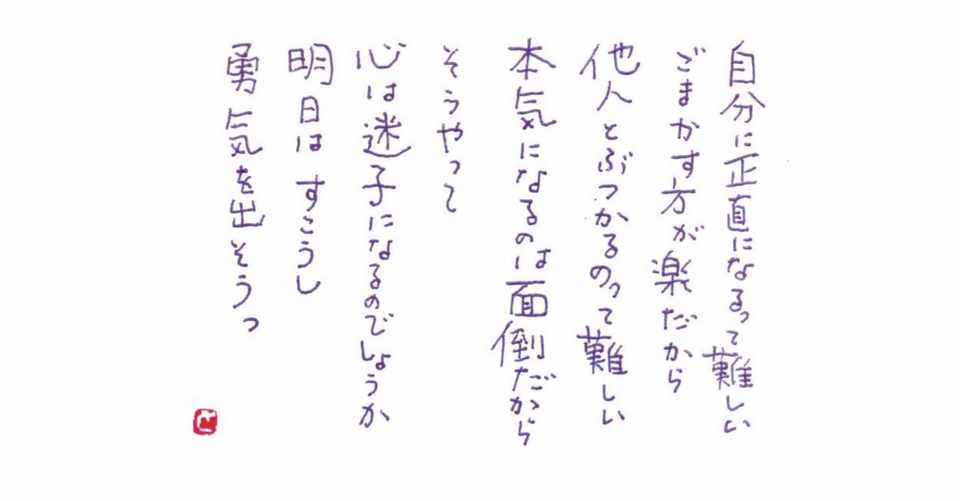 自分に正直になるって難しい
ごまかす方が楽だから
他人とぶつかるのって難しい
本気になるのは面倒だから
そうやって
心は迷子になるのでしょうか
明日は すこうし
勇気を出そうっ